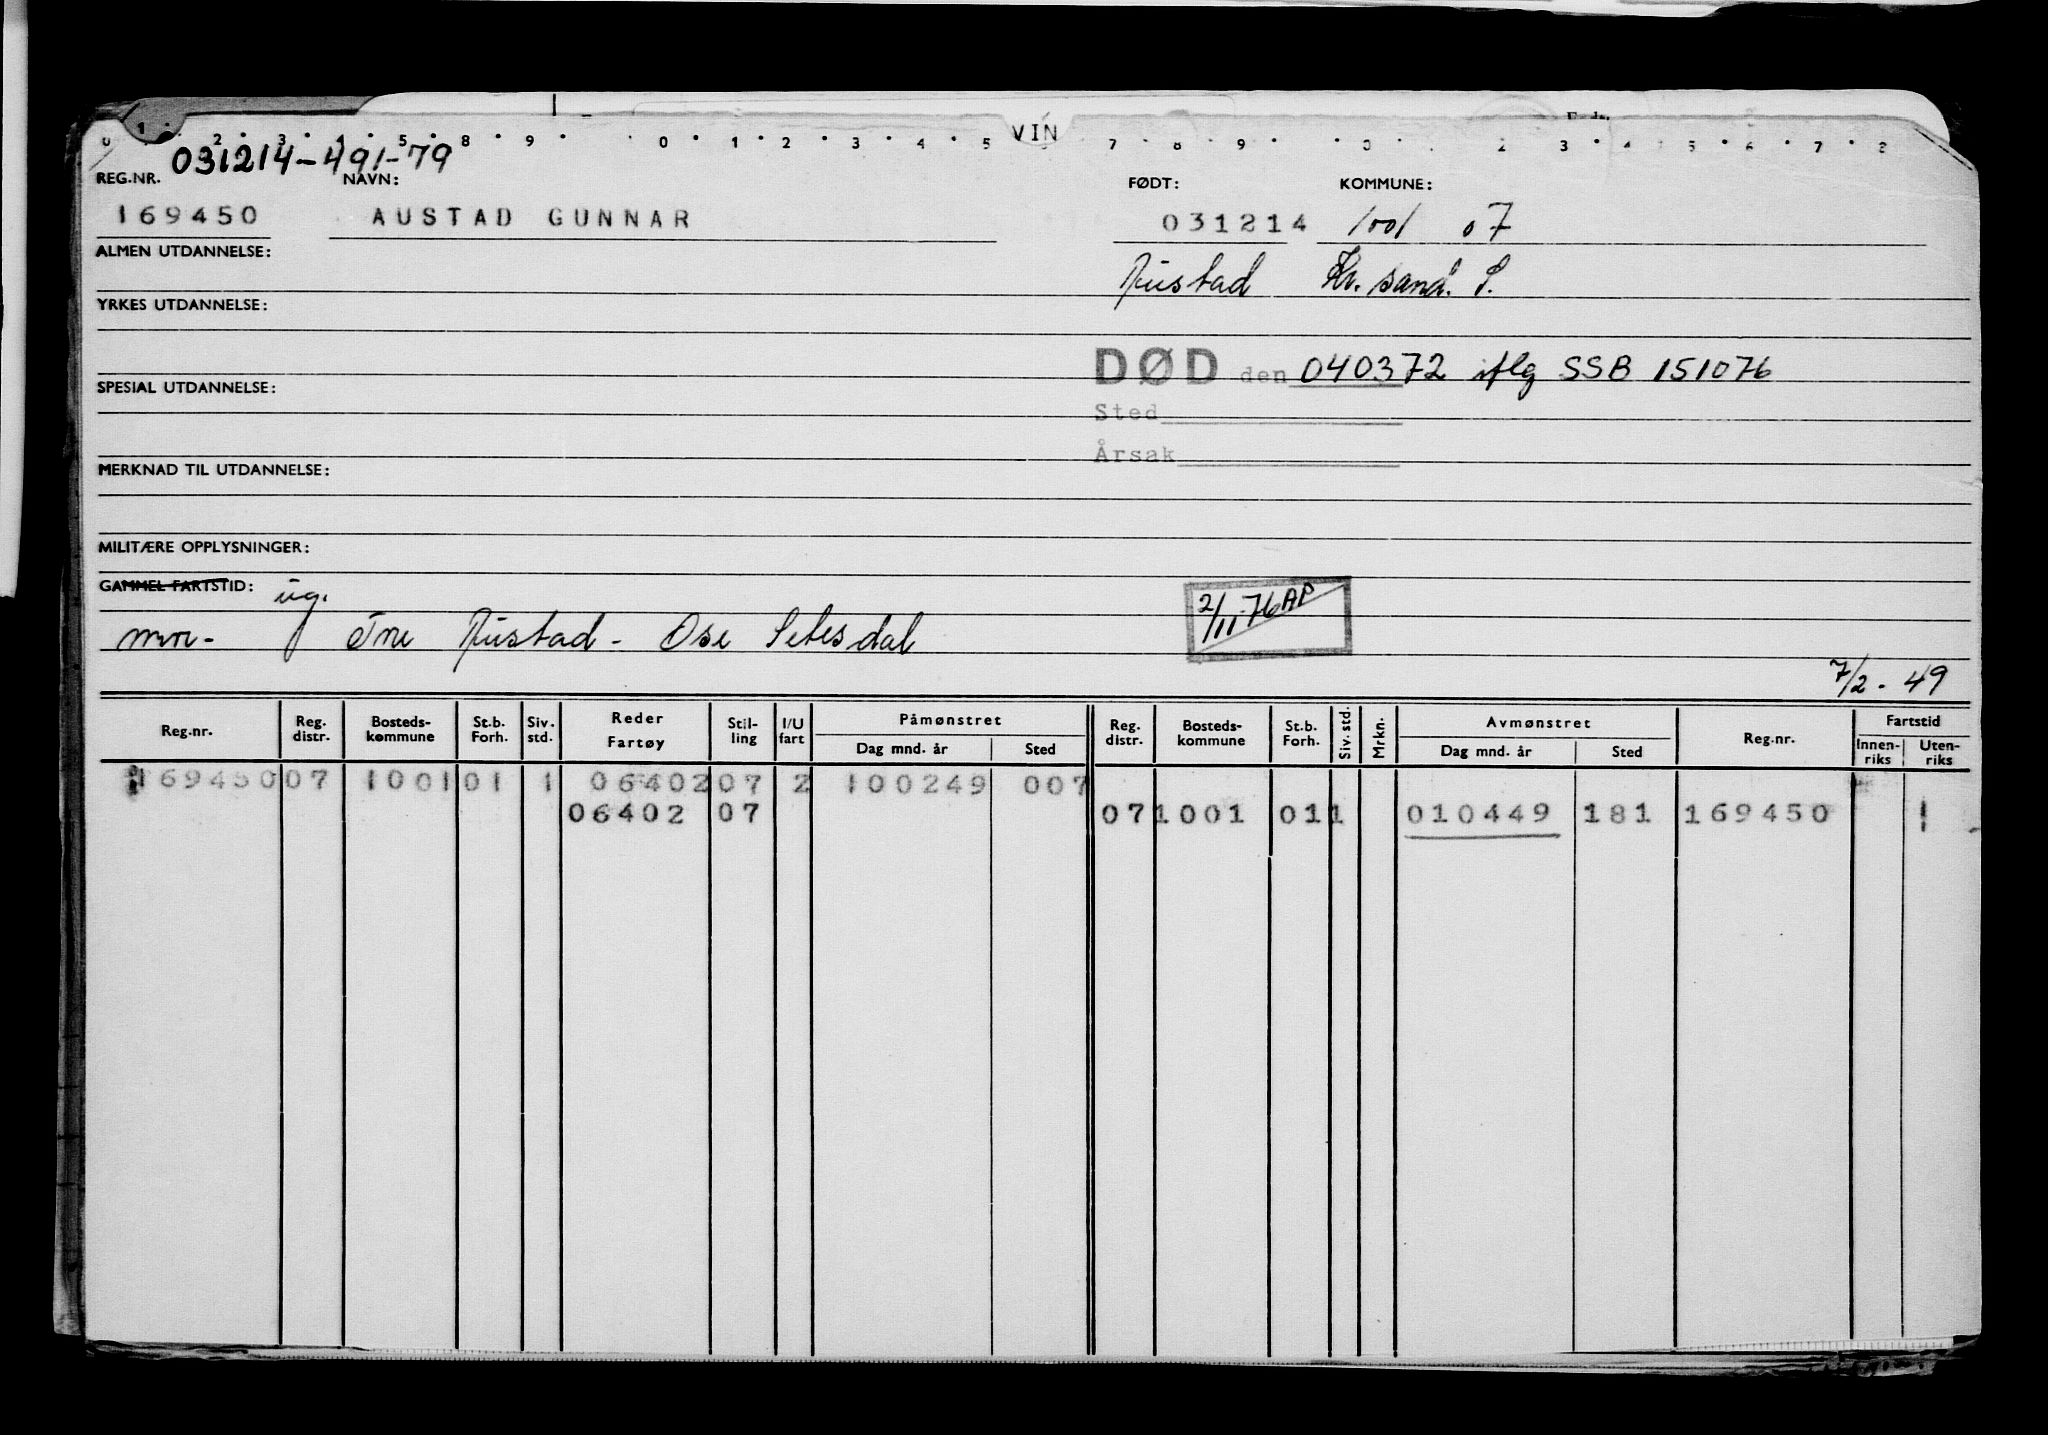 VIN
031214-491-79
REG.NR. NAVN: FØDT: KOMMUNE:
169450 AUSTAD GUNNAR 031214 1001 07
ALMEN UTDANNELSE:
Austad Kr. sand. S.
YRKES UTDANNELSE:
DØD den 040372 iflg SSB 151076
SPESIAL UTDANNELSE:
Sted
Årsak
MERKNAD TIL UTDANNELSE:
MILITÆRE OPPLYSNINGER:
GAMMEL FARTSTID: ug.
2/11-76 AP
mor - Austad - Ose Setesdal
7/2 - 49
Reg.nr. Reg. distr. Bosteds-kommune St.b. Forh. Siv. std. Reder Fartøy Stil-ling I/U fart Påmønstret Dag mnd. år Sted Reg. distr. Bosteds-kommune St.b. Forh. Siv. std. Mrkn. Avmønstret Dag mnd. år Sted Reg.nr. Fartstid Innen-riks Uten-riks
169450 07 1001 01 1 06402 07 2 100249 007
06402 07 07 1001 01 1 010449 181 169450 1